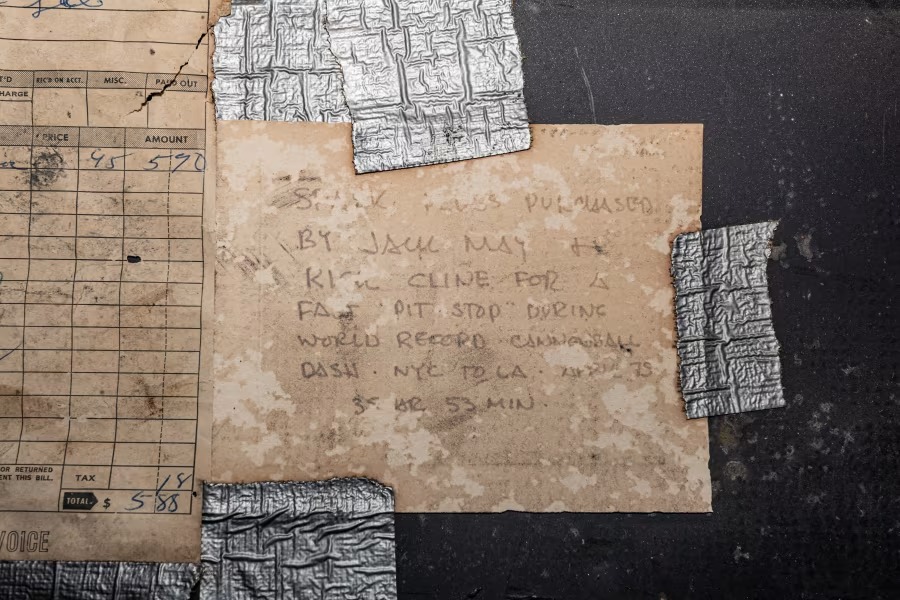 REC'D ON ACCT. MISC. PAID OUT
PRICE AMOUNT
45 5 70
PURCHASED
BY JACK MAY
RICK CLINE FOR A
FAST "PIT STOP" DURING
WORLD RECORD CANNONBALL
DASH · NYC TO LA · APRIL 75
35 HR 53 MIN.
OR RETURNED
THIS BILL.
TAX 18
TOTAL $ 5 88